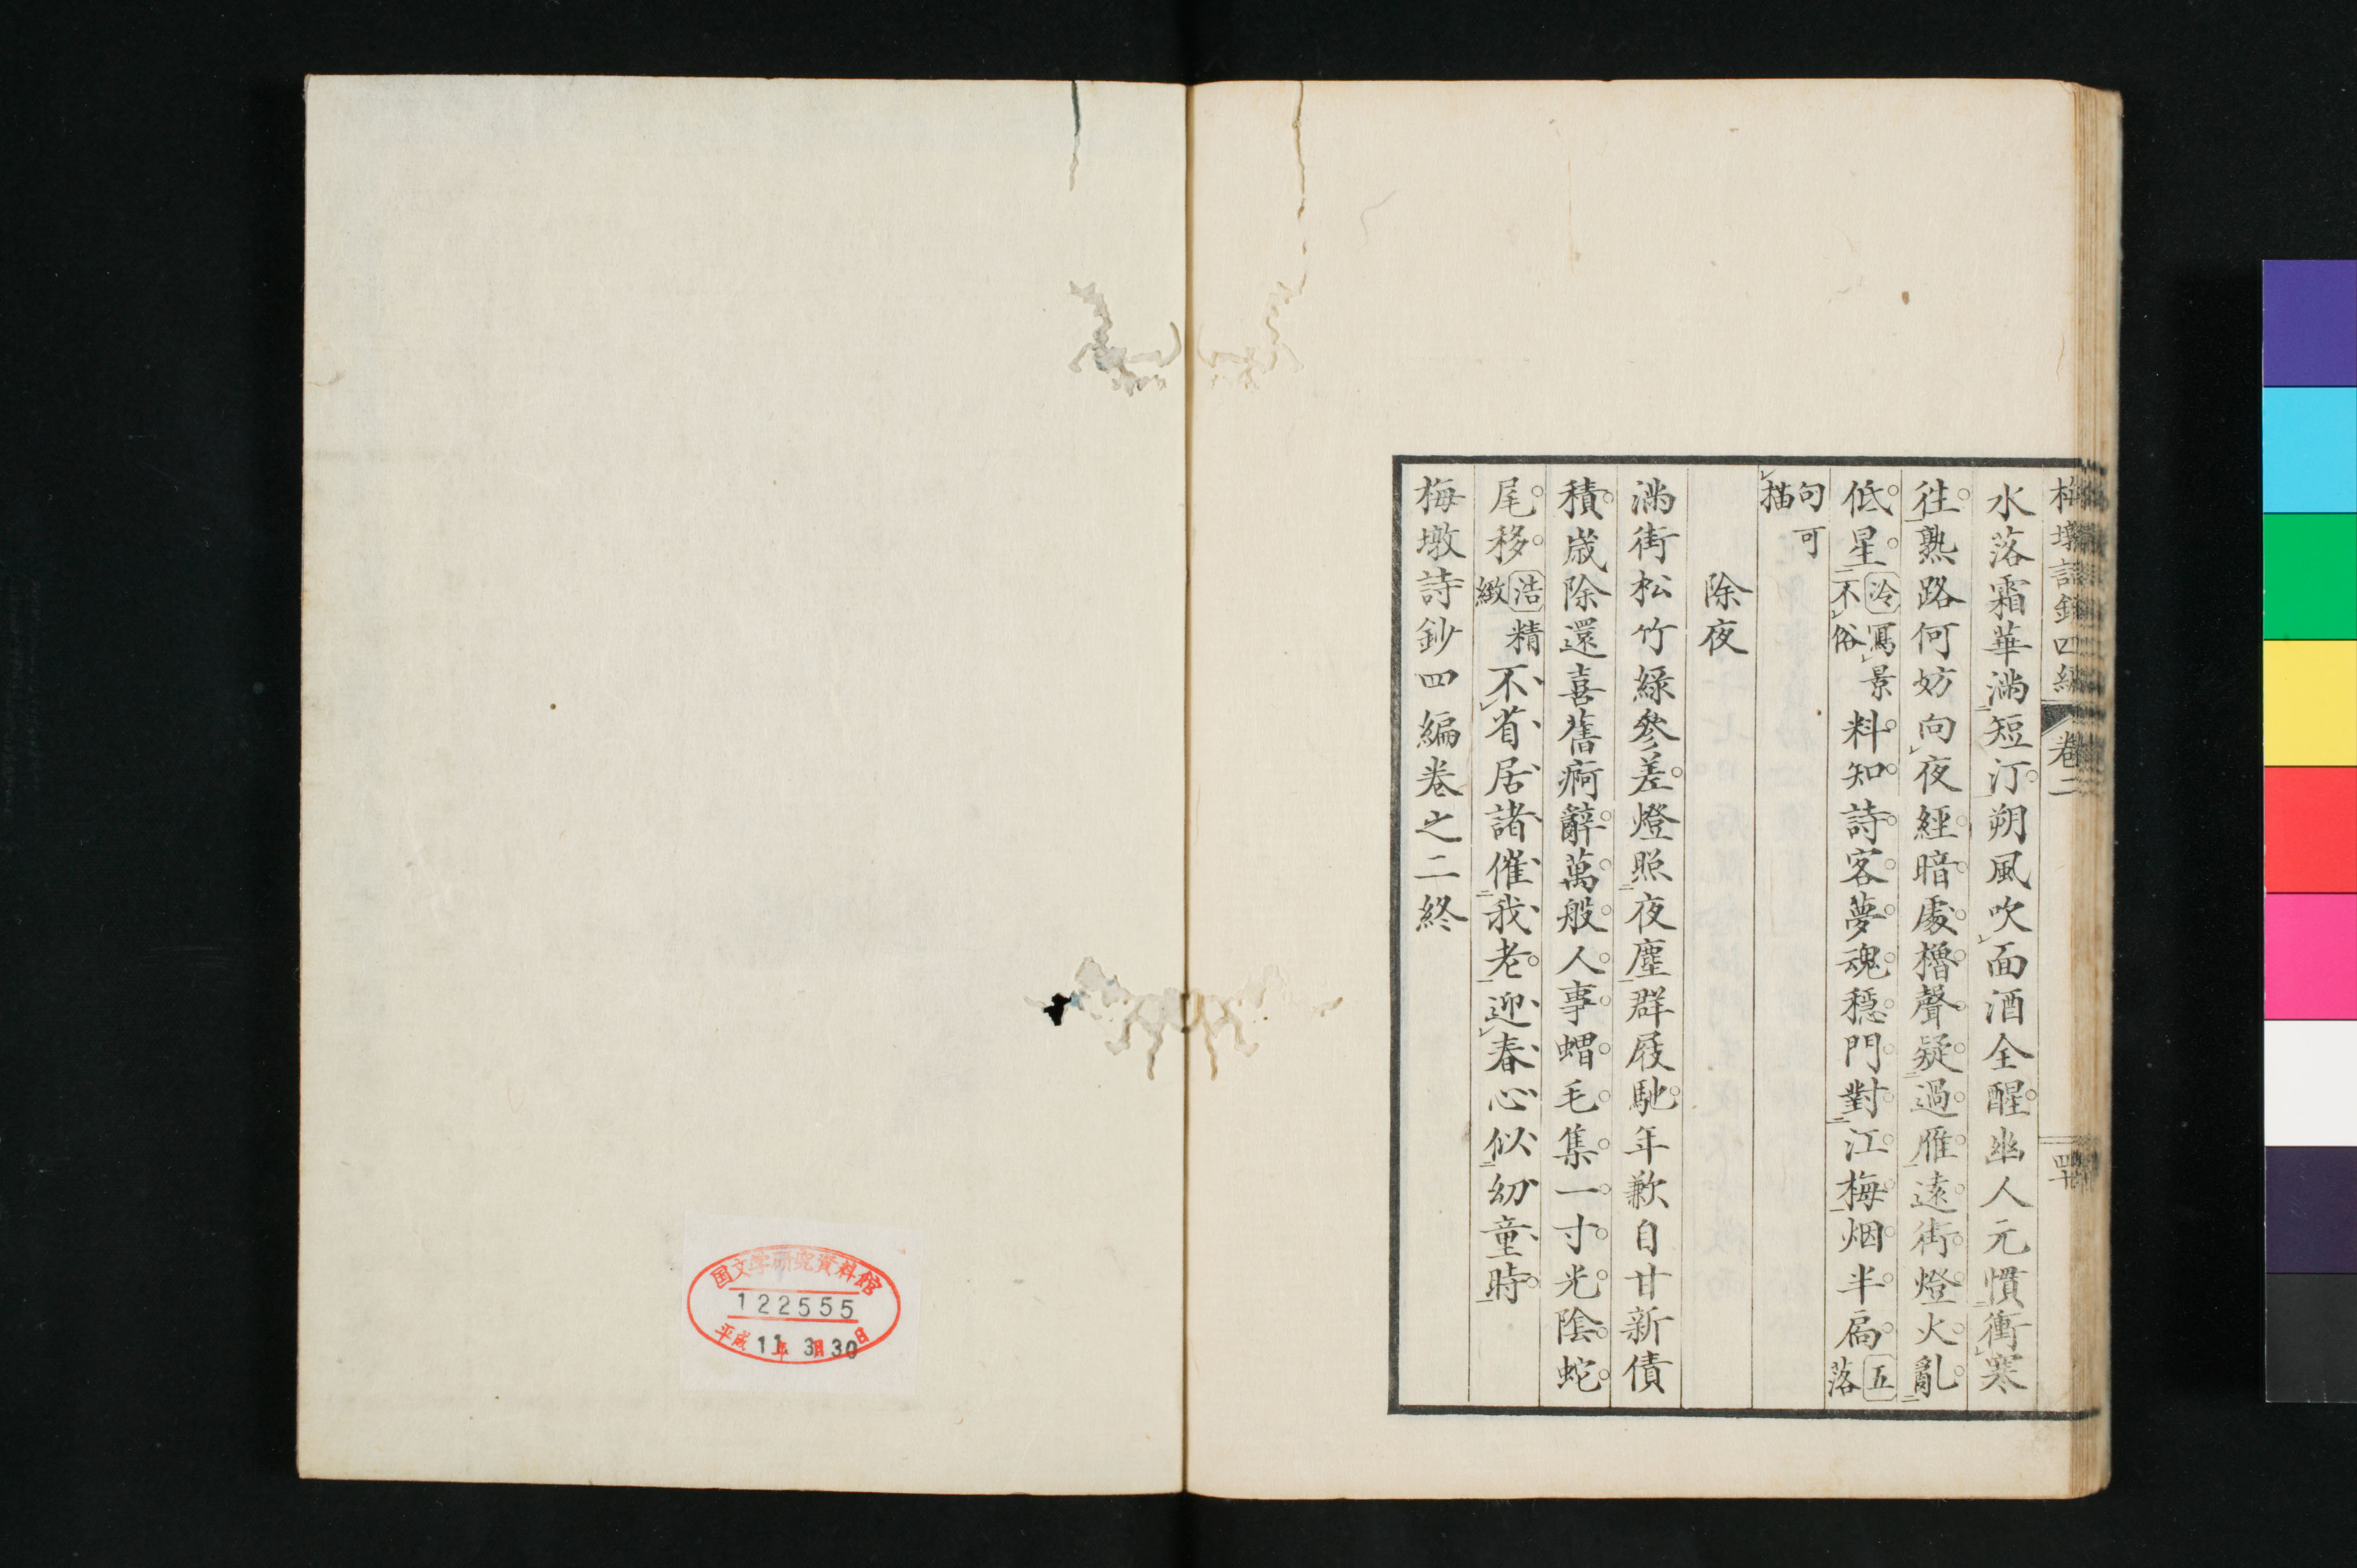 梅墩詩鈔四編 卷二 四十
水落霜華滿短汀朔風吹面酒全醒幽人元慣衝寒
往熟路何妨向夜經暗處櫓聲疑過雁遠街燈火亂
低星冷寫景不俗料知詩客夢魂穩門對江梅烟半扃五落
句可描
除夜
滿街松竹綠參差燈照夜塵群屐馳年歉自甘新債
積歲除還喜舊痾辭萬般人事蝟毛集一寸光陰蛇
尾移浩精緻不省居諸催我老迎春心似幼童時
梅墩詩鈔四編卷之二終
国文学研究資料館
122555
平成11年3月30日